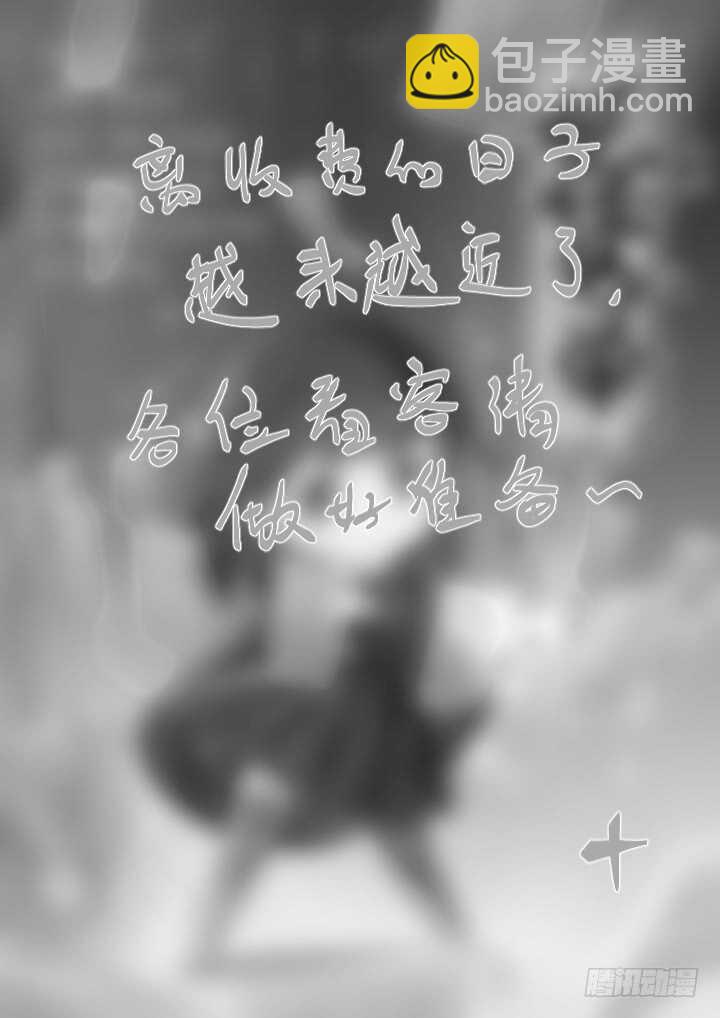 包子漫畫
baozimh.com
离收费的日子
越来越近了，
各位看客请
做好准备～
十
腾讯动漫